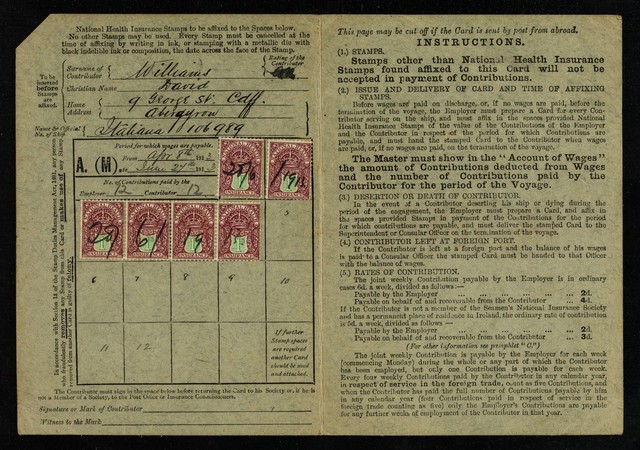 National Health Insurance Stamps to be affixed to the Spaces below.
No other Stamps may be used. Every Stamp must be cancelled at the
time of affixing by writing in ink, or stamping with a metallic die with
black indelible ink or composition, the date across the face of the Stamp.
To be
inserted
before
Stamps
are
affixed.
Surname of
Contributor
Williams
Rating of the
Contributor
Christian Name
David
Home
Address
9 George St. Cdff.
Aberavon
Name & Official
No. of Ship
Italiana 106989
A. (M)
Period for which wages are payable.
From
to
No. of Contributions paid by the
Employer 12 Contributor 12
INSURANCE
INSURANCE
INSURANCE
INSURANCE
INSURANCE
INSURANCE
3
6 7 8 9 10
11 12
If further
Stamp spaces
are required
another Card
should be used
and attached.
The Contributor must sign the space below before returning the Card to his Society or, if he is
not a Member of a Society, to the Post Office or Insurance Commissioners.
Signature or Mark of Contributor
Witness to the Mark
This page may be cut off if the Card is sent by post from abroad.
INSTRUCTIONS.
(1.) STAMPS.
Stamps other than National Health Insurance
Stamps found affixed to this Card will not be
accepted in payment of Contributions.
(2.) ISSUE AND DELIVERY OF CARD AND TIME OF AFFIXING
STAMPS.
Before wages are paid on discharge, or, if no wages are paid, before the
termination of the voyage, the Employer must prepare a Card for every Con-
tributor serving on the ship, and must affix in the spaces provided National
Health Insurance Stamps of the value of the Contributions of the Employer
and the Contributor in respect of the period for which Contributions are
payable, and must hand the stamped Card to the Contributor when wages
are paid, or, if no wages are paid, on the termination of the voyage.
The Master must show in the "Account of Wages"
the amount of Contributions deducted from Wages
and the number of Contributions paid by the
Contributor for the period of the Voyage.
(3.) DESERTION OR DEATH OF CONTRIBUTOR.
In the event of a Contributor deserting his ship or dying during the
period of the engagement, the Employer must prepare a Card, and affix in
the spaces provided Stamps in payment of the Contributions for the period
for which contributions are payable, and must deliver the stamped Card to the
Superintendent or Consular Officer on the termination of the voyage.
(4.) CONTRIBUTOR LEFT AT FOREIGN PORT.
If the Contributor is left at a foreign port and the balance of his wages
is paid to a Consular Officer the stamped Card must be handed to that Officer
with the balance of wages.
(5.) RATES OF CONTRIBUTION.
The joint weekly Contribution payable by the Employer is in ordinary
cases 6d. a week, divided as follows:—
Payable by the Employer ... ... ... ... 2d.
Payable on behalf of and recoverable from the Contributor ... 4d.
If the Contributor is not a member of the Seamen's National Insurance Society
and has a permanent place of residence in Ireland, the ordinary rate of contribution
is 5d. a week, divided as follows:—
Payable by the Employer ... ... ... ... 2d.
Payable on behalf of and recoverable from the Contributor ... 3d.
(For other information see pamphlet "C.")
The joint weekly Contribution is payable by the Employer for each week
(commencing Monday) during the whole or any part of which the Contributor
has been employed, but only one Contribution is payable for each week.
Every four weekly Contributions paid by the Contributor in any calendar year,
in respect of service in the foreign trade, count as five Contributions, and
when the Contributor has paid the full number of Contributions payable by him
in any calendar year (four Contributions paid in respect of service in the
foreign trade counting as five) only the Employer's Contributions are payable
for any further weeks of employment of the Contributor in that year.